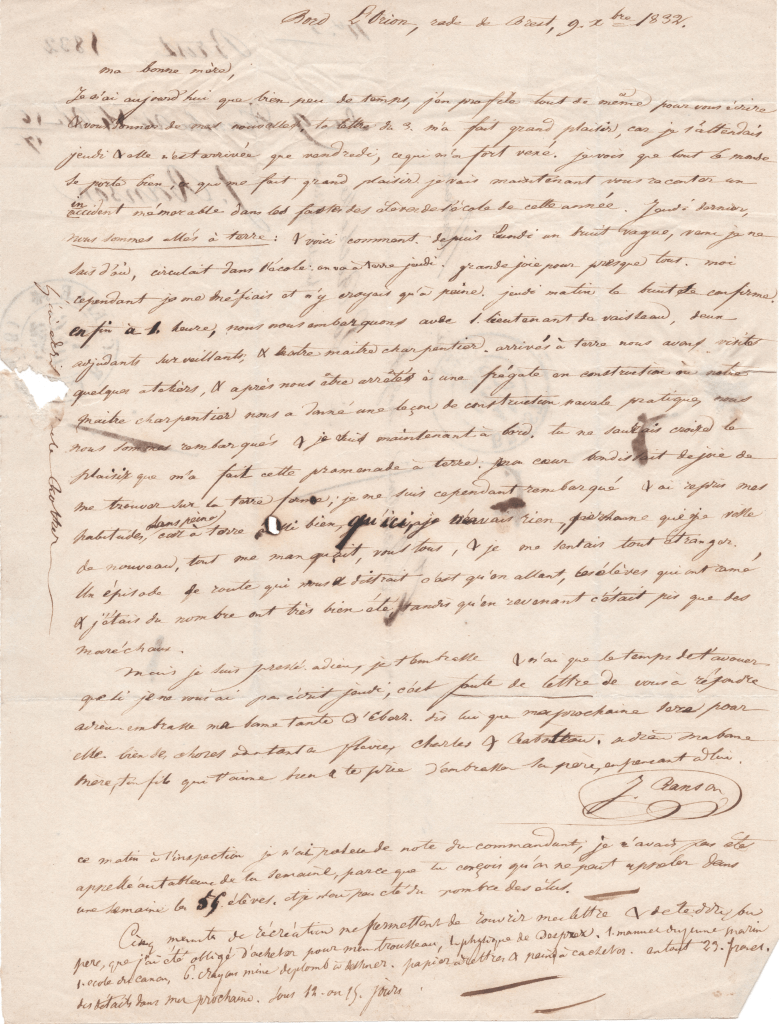 Bord L'Orion, rade de Brest, 9. Xbre 1832.
ma bonne mère,
Je n'ai aujourd'hui que bien peu de temps, j'en profite tout de même pour vous écrire
& vous donner de mes nouvelles. ta lettre du 3. m'a fait grand plaisir, car je l'attendais
jeudi & elle n'est arrivée que vendredi, ce qui m'a fort vexé. je vois que tout le monde
se porte bien, ce que me fait grand plaisir je vais maintenant vous raconter un
incident mémorable dans les fastes des élèves de l'école de cette année. Jeudi dernier,
nous sommes allés à terre: & voici comment. depuis Lundi un bruit vague, venu je ne
sais d'où, circulait dans l'école: on va à terre jeudi. grande joie pour presque tous. moi
cependant je me méfiais et n'y croyais qu'à peine. jeudi matin le bruit se confirme,
enfin à 1. heure, nous nous embarquons avec 1. lieutenant de vaisseau, deux
adjudants surveillants, & maitre charpentier. arrivés à terre nous avons visité
quelques ateliers, & après nous être arrêtés à une frégate en construction où notre
maitre charpentier nous a donné une leçon de construction navale pratique, nous
nous sommes rembarqués & je suis maintenant à bord. tu ne saurais croire le
plaisir que m'a fait cette promenade à terre. mon cœur bondissait de joie de
me trouver sur la terre ferme, je me suis cependant rembarqué & ai repris mes
habitudes, sans peine c'est à terre bien, qu'ici, je n'avais rien,
de nouveau, tout me manquait, vous tous, & je me sentais tout étranger.
Un épisode de route qui nous a distrait c'est qu'en allant, les élèves qui ont ramé,
& j'étais du nombre ont très bien été, tandis qu'en revenant c'était pis que des
maréchaux.
Mais je suis pressé. adieu, je t'embrasse & n'ai que le temps de t'avouer
que si je ne vous ai pas écrit jeudi, c'est faute de lettre de vous à répondre
adieu. embrasse ma bonne tante dis lui que ma prochaine sera pour
elle. bien des choses à tantante fleury, Charles & adieu ma bonne
mère, ton fils qui t'aime bien & te prie d'embrasser son père, en pensant à lui.
J. Ranson
ce matin à l'inspection je n'ai pas eu de note du commandant, je n'avais pas été
appellé au tableau de la semaine, parce que tu conçois qu'on ne peut appeler dans
une semaine les 55 élèves. et je n'ai pas été du nombre des élus.
Cinq minutes de récréation me permettent de rouvrir ma lettre & de te dire, mon
père, que j'ai été obligé d'acheter pour mon trousseau, 1. physique de Despretz. 1. manuel du jeune marin
1. ecole du canon, 6. crayons mine de plomb à dessiner. papier à lettres & pain à cacheter. en tout 23. francs.
des détails dans ma prochaine. Sous 12. ou 15. jours.